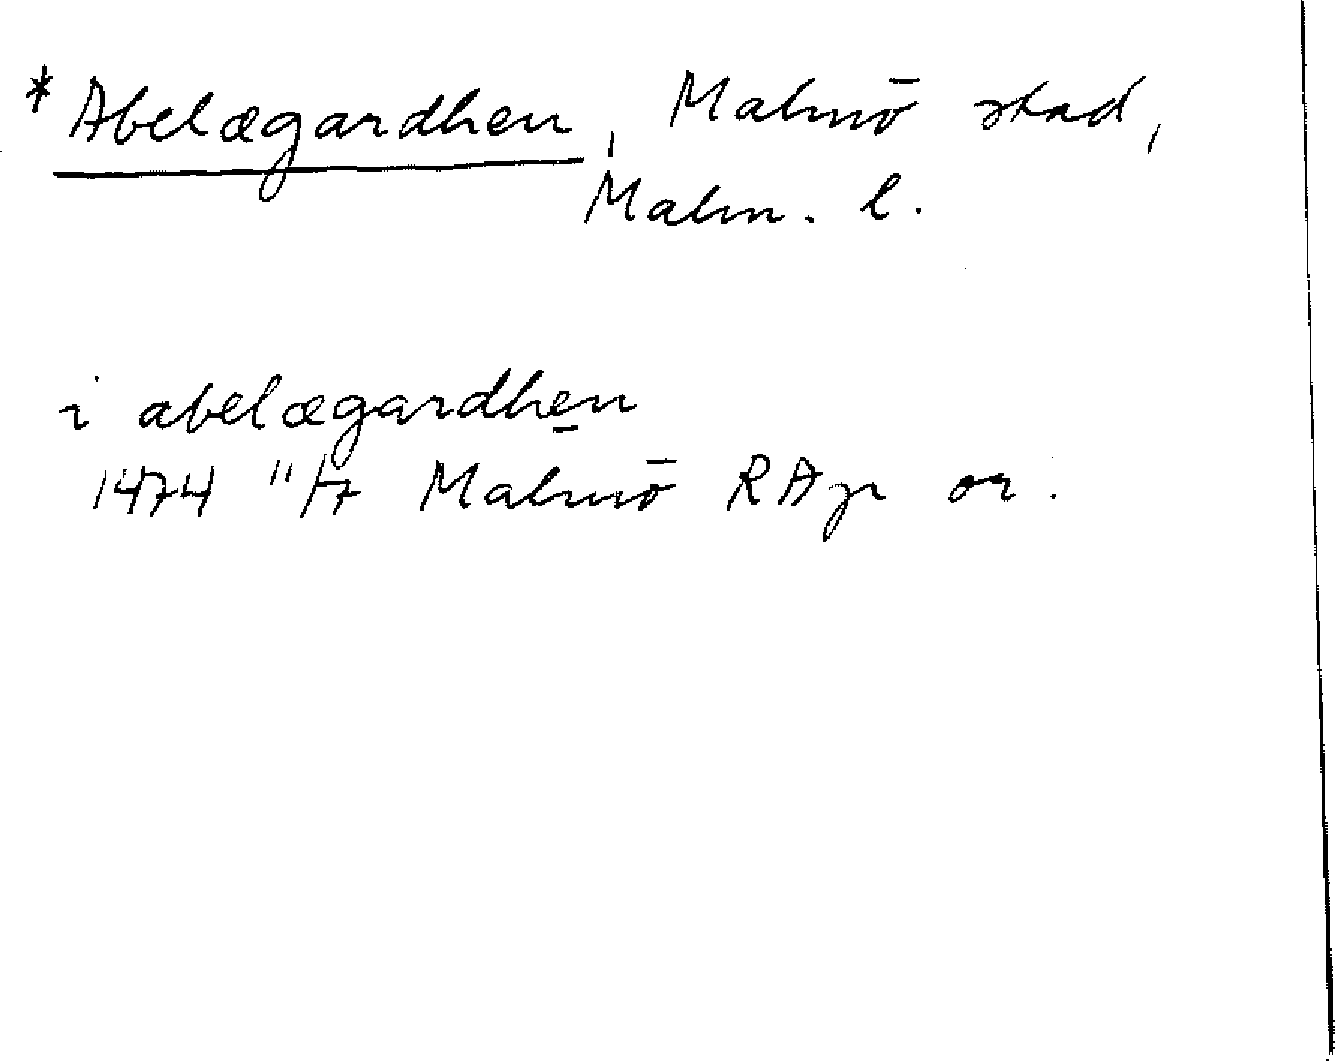 * Abelægardhen, Malmö stad,
Malm. l.
i abelægardhen
1474 11/7 Malmö RAp or.